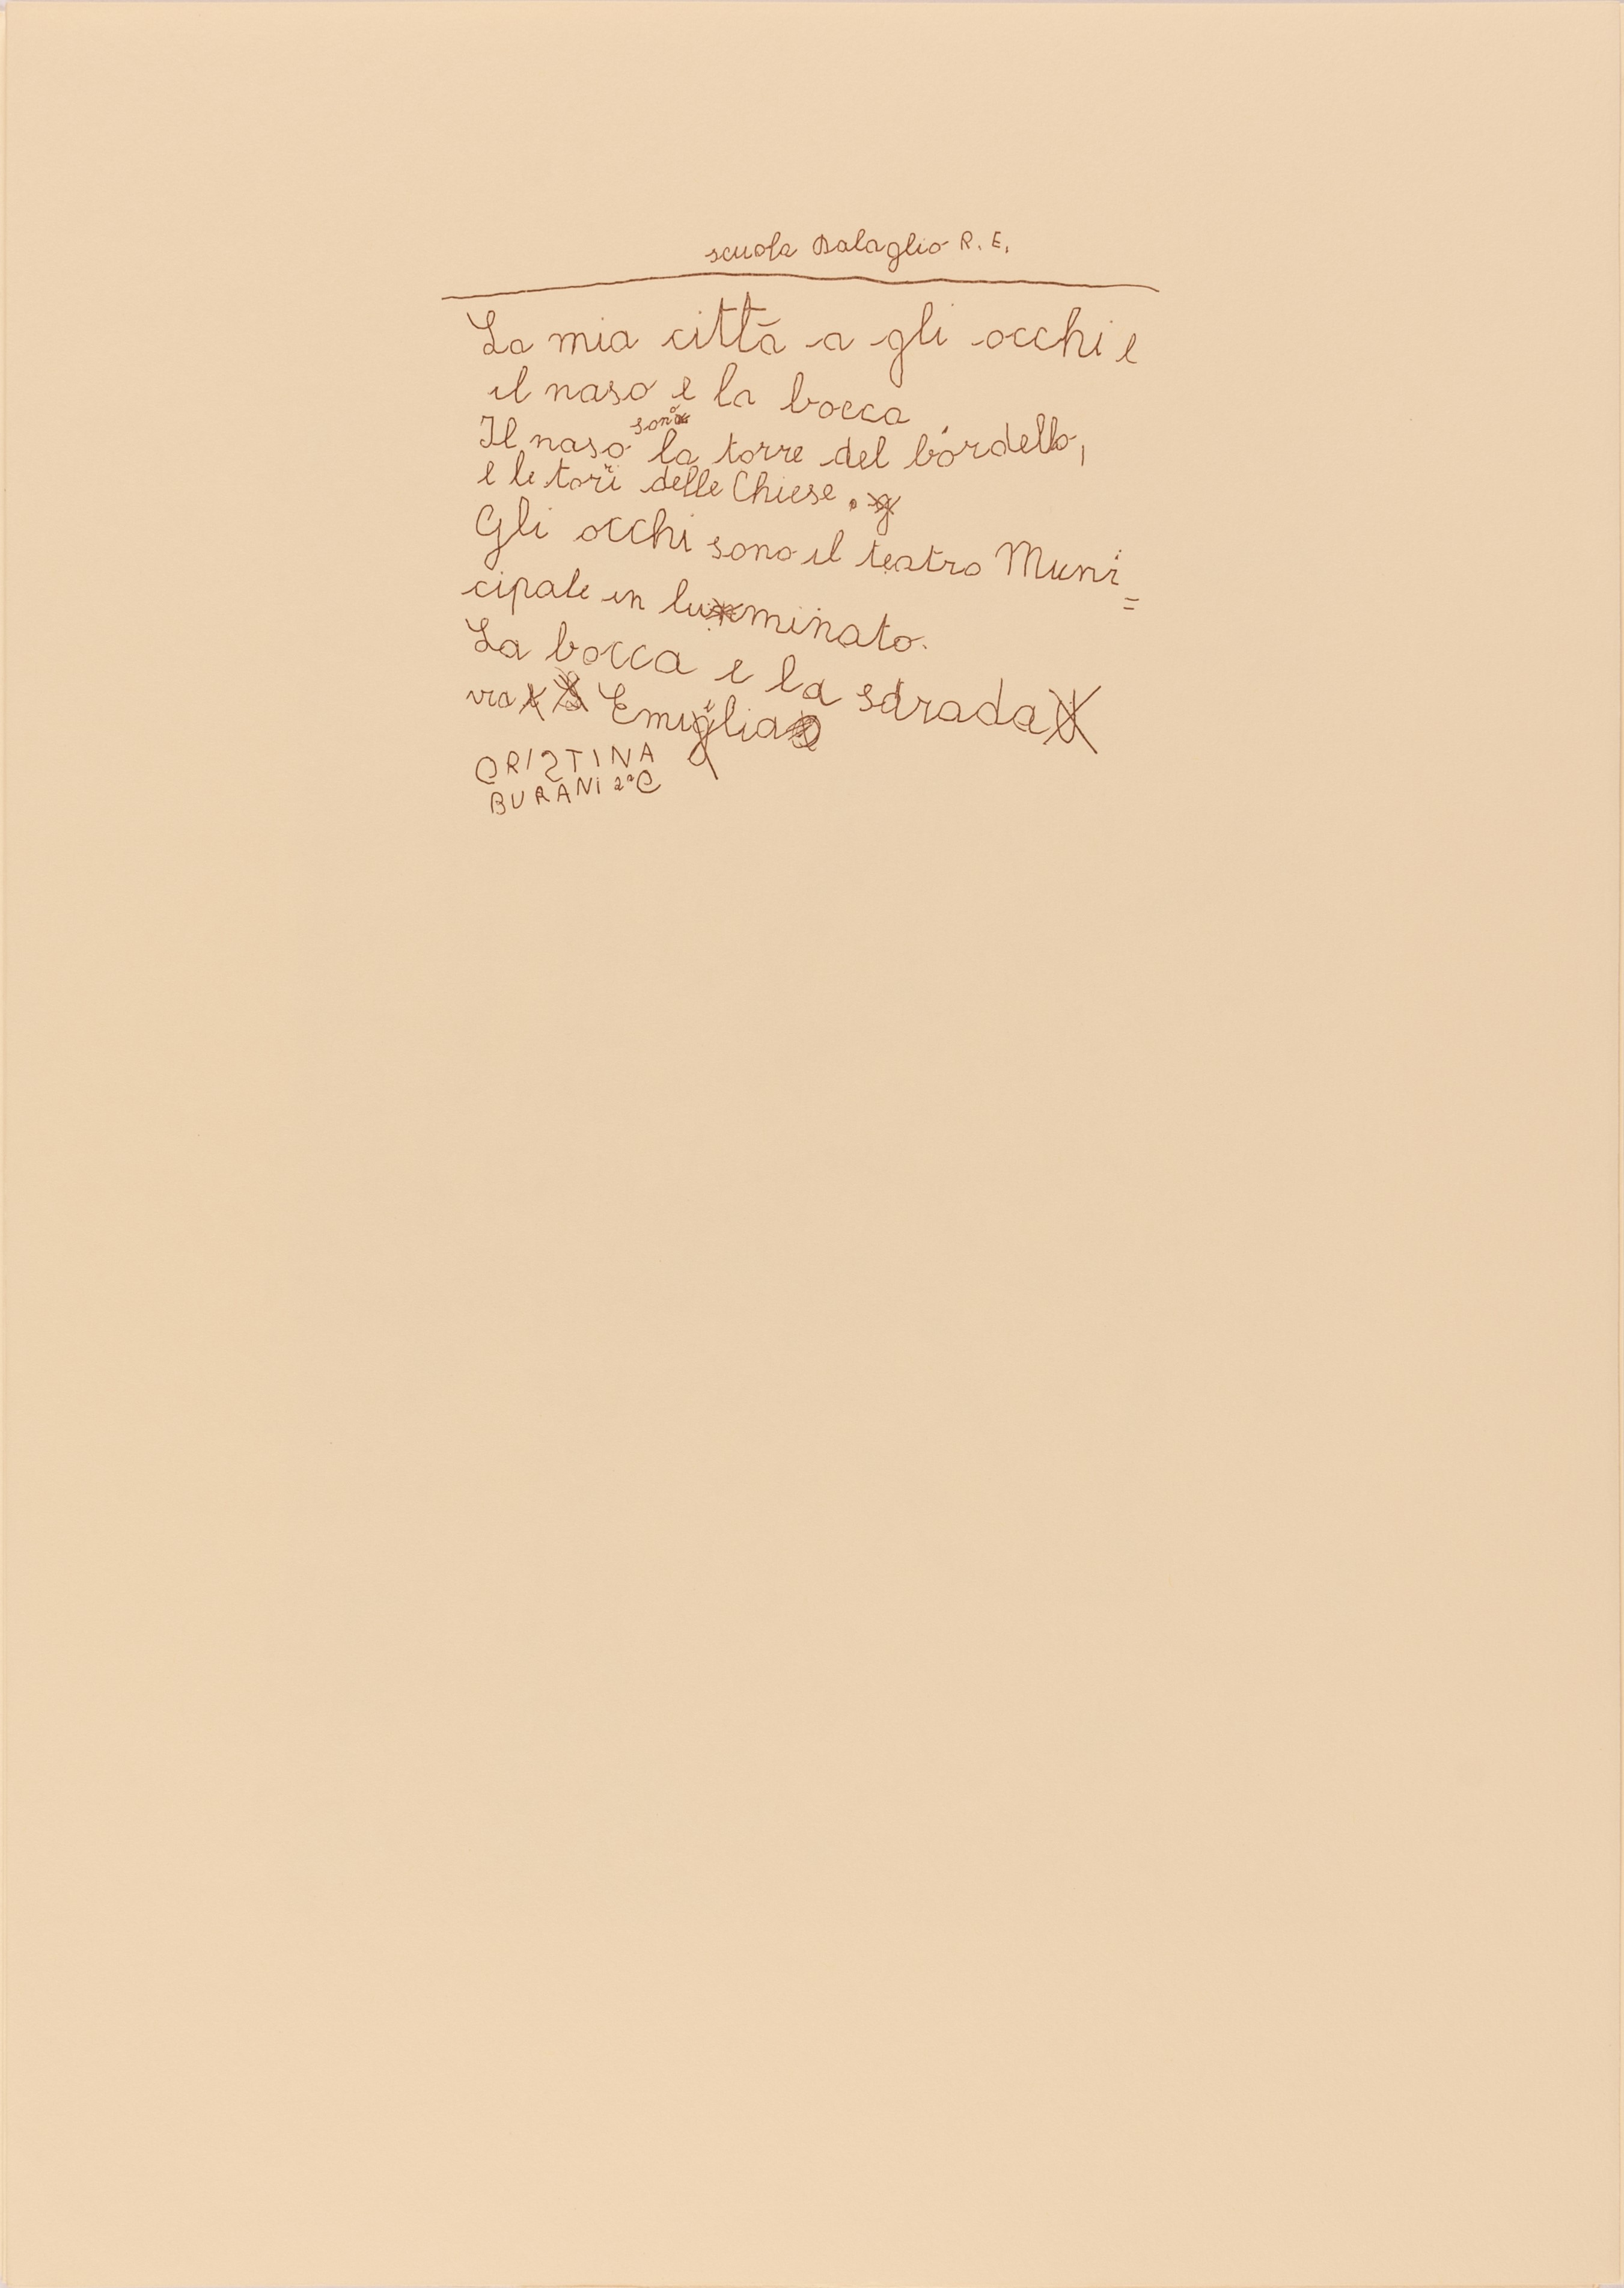 scuola Balaglio R. E.
La mia città a gli occhi e
il naso e la bocca
Il naso sono la torre del bordello,
e le tori delle Chiese.
Gli occhi sono il teatro Muni=
cipale in luminato.
La bocca e la sdrada
via Emiglia
CRISTINA
BURANI 2ªC